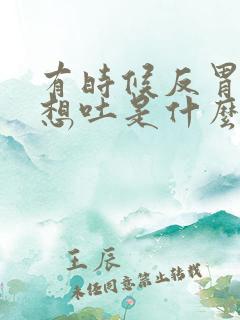 有时候反胃
想吐是什么
王辰
未经同意禁止转载